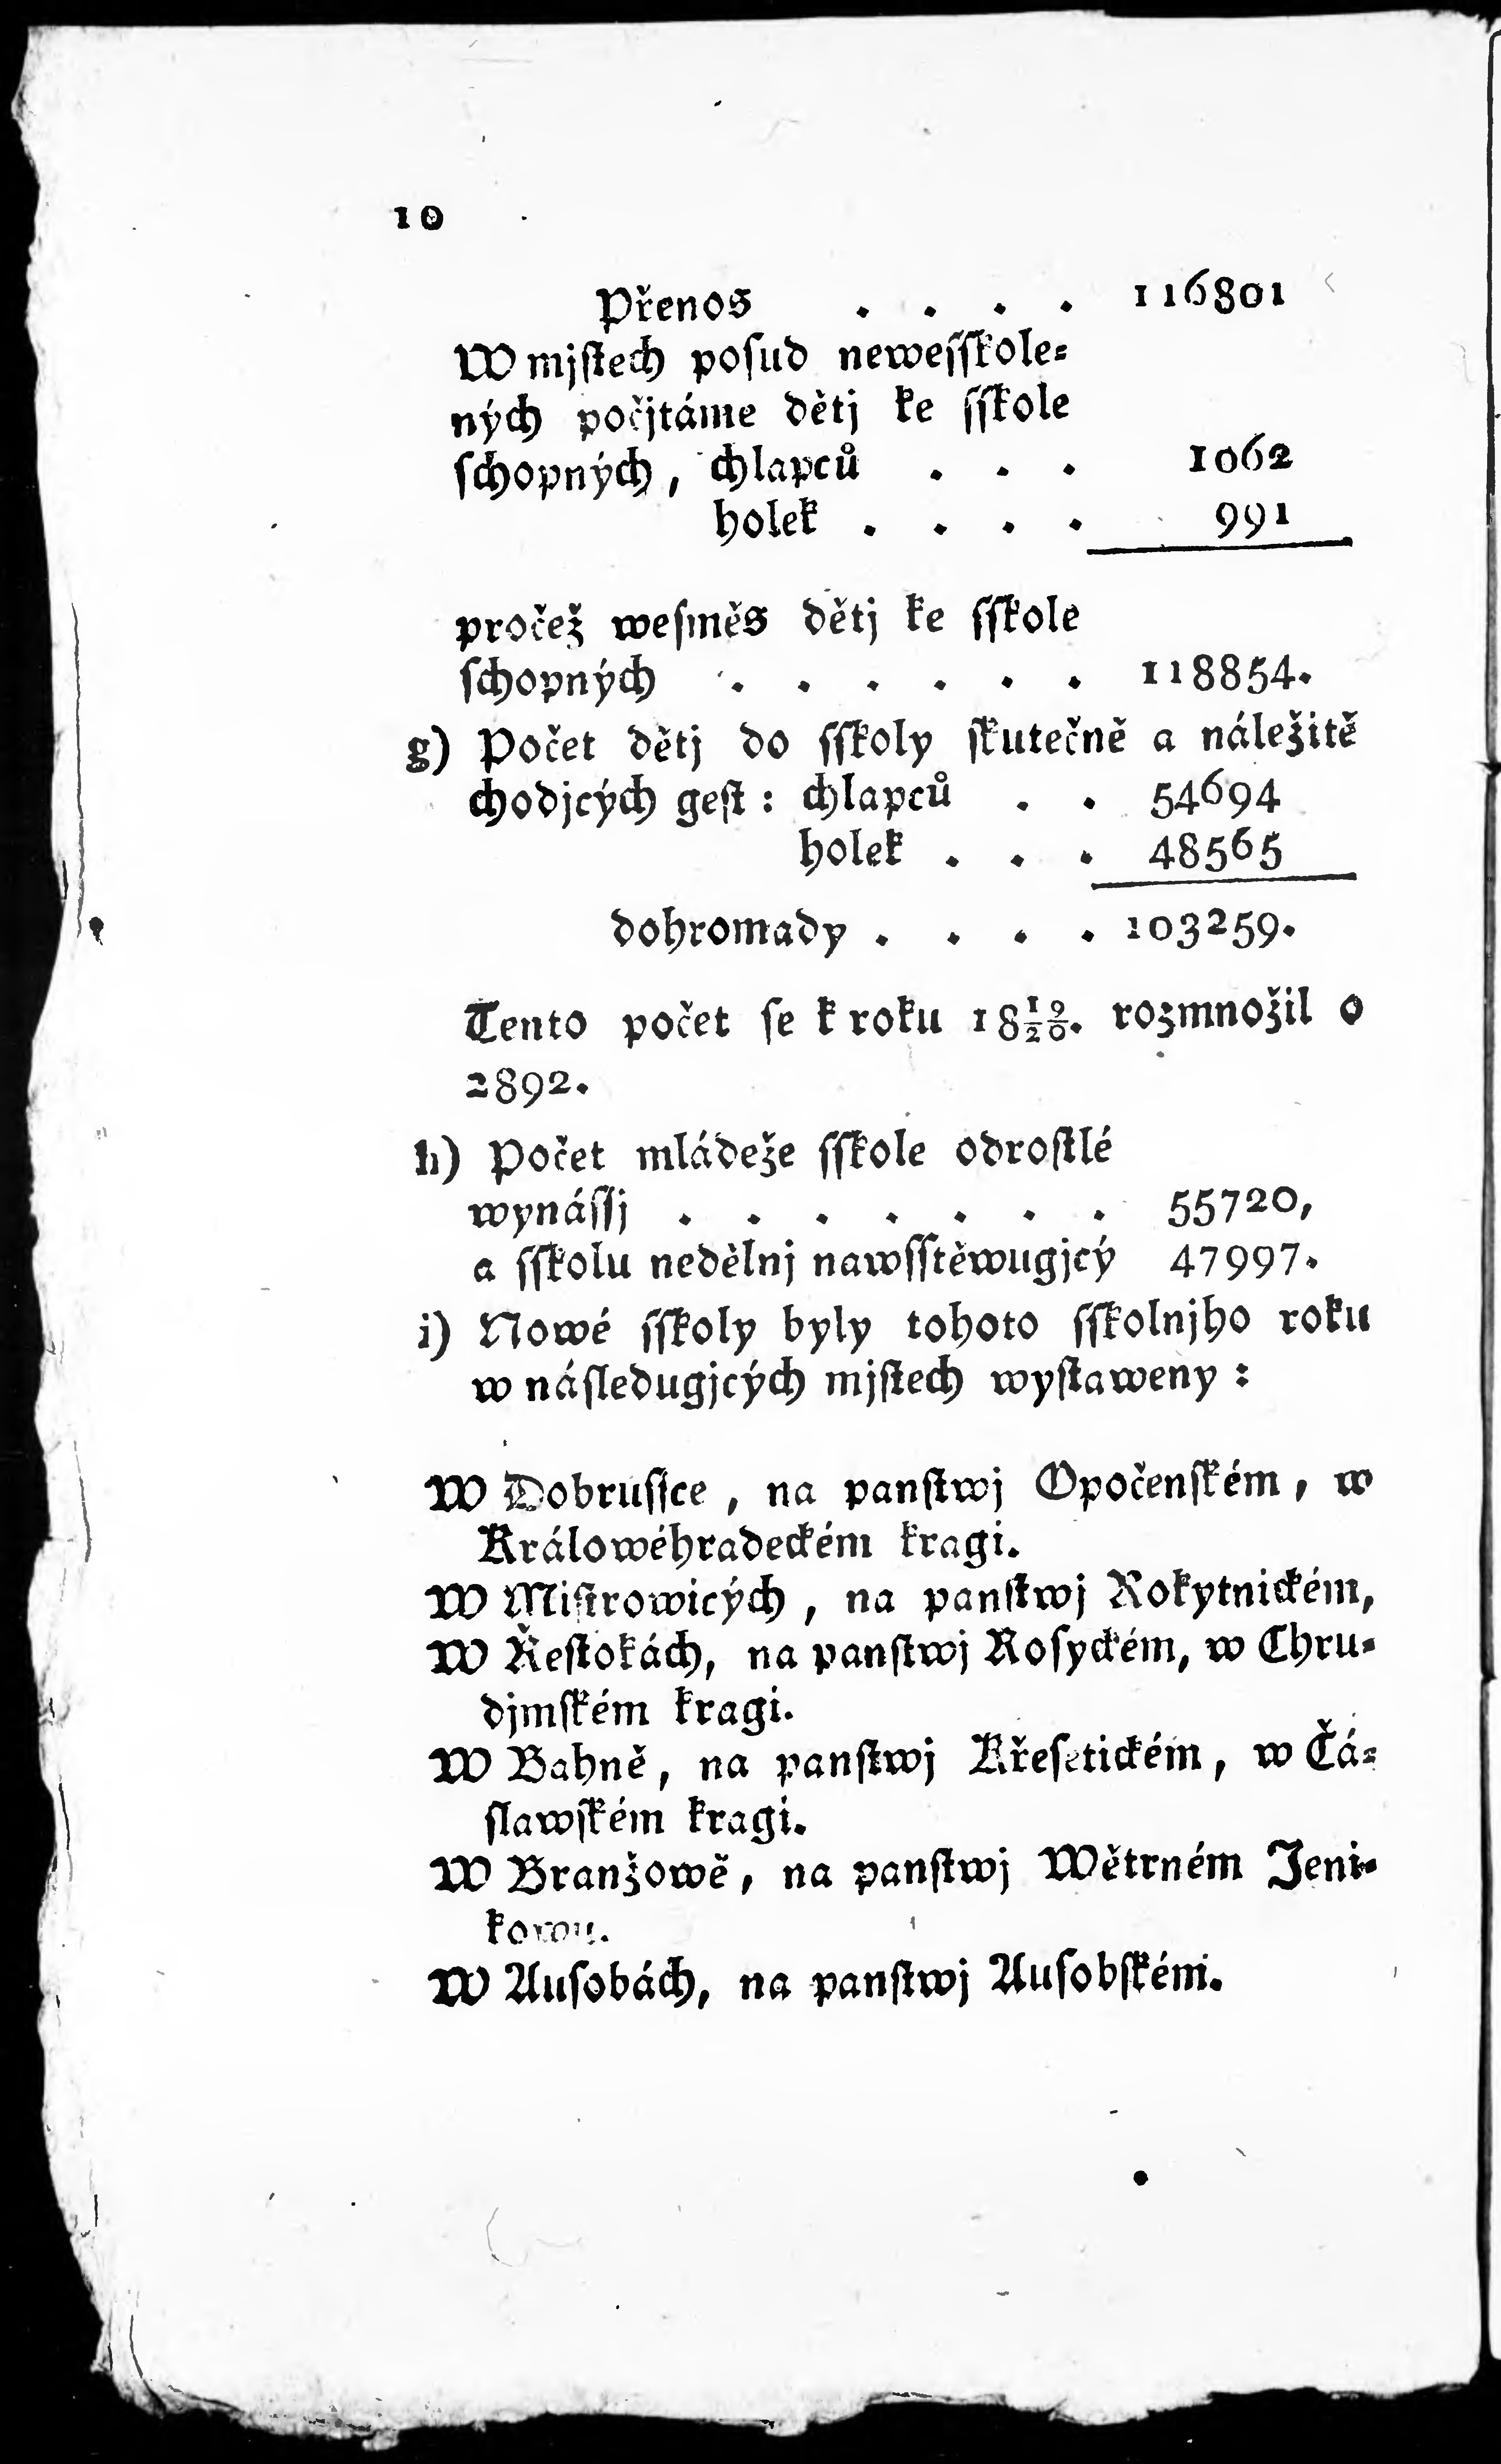 10
Přenos . . . . 116801
W mjſtech poſud neweſſkole⸗
ných počjtáme dětj ke ſſkole
ſchopných, chlapců . . . 1062
holek . . . . 991
pročež weſměs dětj ke ſſkole
ſchopných . . . . . . 118854.
g) Počet dětj do ſſkoly ſkutečně a náležitě
chodjcých geſt: chlapců . . 54694
holek . . . 48565
dohromady . . . . 103259.
Tento počet ſe k roku 18 19/20. rozmnožil o
2892.
h) Počet mládeže ſſkole odroſtlé
wynáſſj . . . . . . . 55720,
a ſſkolu nedělnj nawſſtěwugjcý 47997.
i) Nowé ſſkoly byly tohoto ſſkolnjho roku
w náſledugjcých mjſtech wyſtaweny:
W Dobruſſce, na panſtwj Opočenſkém, w
Králowéhradeckém kragi.
W Miſtrowicých, na panſtwj Rokytnickém,
W Řeſtokách, na panſtwj Roſyckém, w Chru⸗
djmſkém kragi.
W Bahně, na panſtwj Křeſetickém, w Čá⸗
ſlawſkém kragi.
W Branžowě, na panſtwj Wětrném Jeni⸗
kowu.
W Auſobách, na panſtwj Auſobſkém.